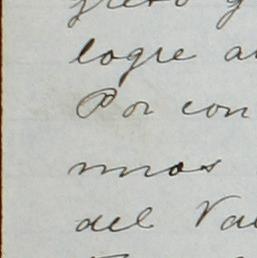 logre a
Por con
nnos
del Va